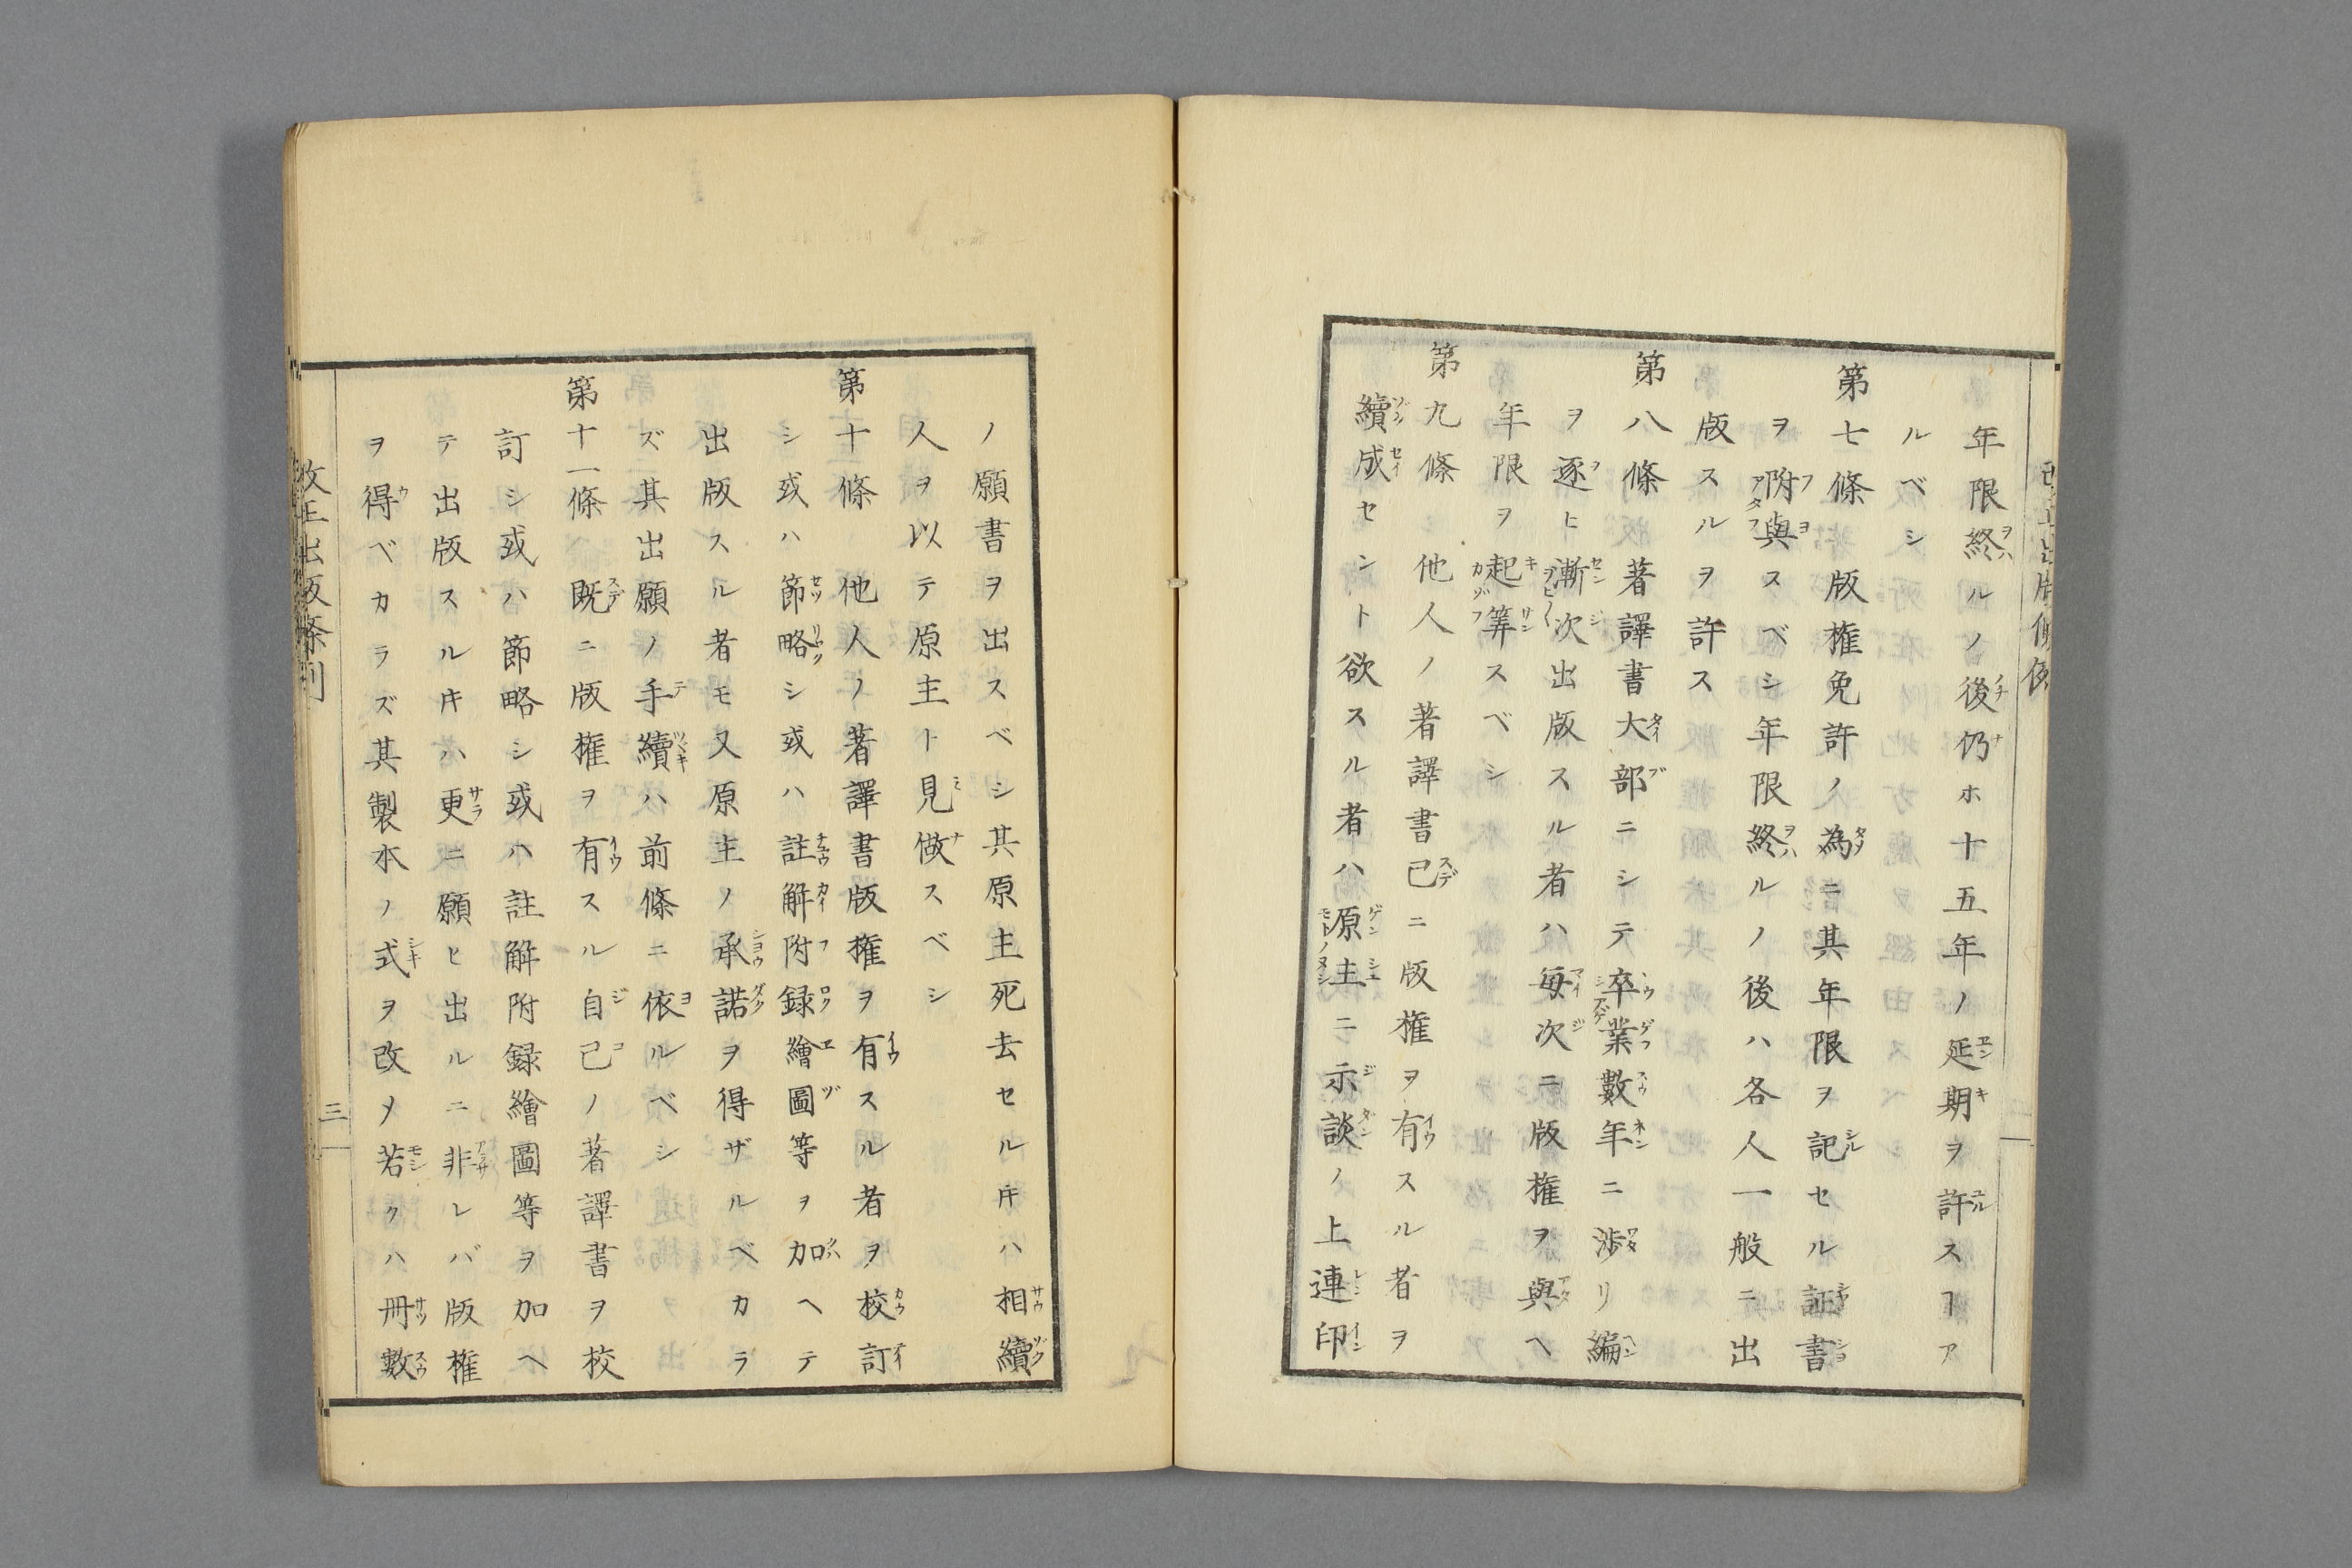 年限終ルノ後仍ホ十五年ノ延期ヲ許スヿア
ルベシ
第七條 版權免許ノ為ニ其年限ヲ記セル証書
ヲ附與スベシ年限終ルノ後ハ各人一般ニ出
版スルヲ許ス
第八條 著譯書大部ニシテ卒業數年ニ涉リ編
ヲ逐ヒ漸次出版スル者ハ毎次ニ版權ヲ與ヘ
年限ヲ起筭スベシ
第九條 他人ノ著譯書已ニ版權ヲ有スル者ヲ
續成セント欲スル者ハ原主ニ示談ノ上連印
ノ願書ヲ出スベシ其原主死去セルキハ相續
人ヲ以テ原主ト見做スベシ
第十條 他人ノ著譯書版權ヲ有スル者ヲ校訂
シ或ハ節略シ或ハ註解附録繪圖等ヲ加ヘテ
出版スル者モ又原主ノ承諾ヲ得ザルベカラ
ズ其出願ノ手續ハ前條ニ依ルベシ
第十一條 既ニ版權ヲ有スル自己ノ著譯書ヲ校
訂シ或ハ節略シ或ハ註解附録繪圖等ヲ加ヘ
テ出版スルキハ更ニ願ヒ出ルニ非レバ版權
ヲ得ベカラズ其製本ノ式ヲ改メ若クハ冊數
改正出版條例
三